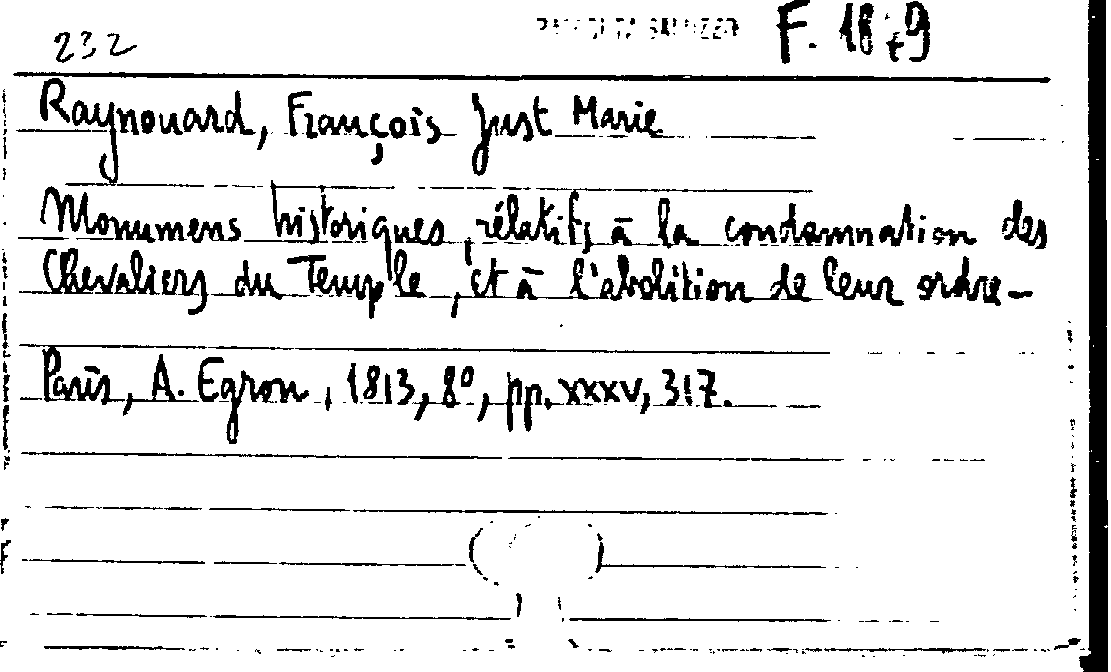 232
RACCOLTA SALUZZO F. 1879
Raynouard, François Just Marie
Monumens historiques, rélatifs à la condamnation des
Chevaliers du Temple, et à l'abolition de leur ordre-
Paris, A. Egron, 1813, 8º, pp. XXXV, 317.